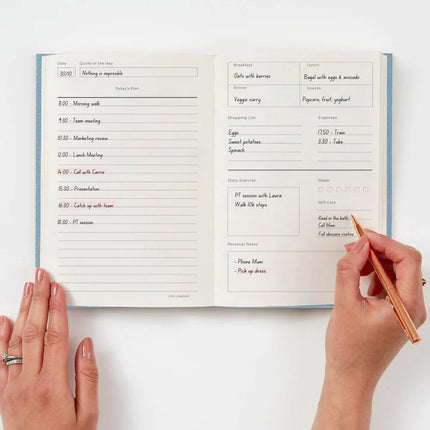 Date
Quote of the day
30/10
Nothing is impossible
Today's Plan
8:00 - Morning walk
9:30 - Team meeting
10:30 - Marketing review
12:00 - Lunch Meeting
14:00 - Call with Carrie
15:30 - Presentation
16:30 - Catch up with team
18:30 - PT session
Breakfast
Lunch
Oats with berries
Bagel with eggs & avocado
Dinner
Snacks
Veggie curry
Popcorn, fruit, yoghurt
Shopping List
Expenses
Eggs
17.50 - Train
Sweet potatoes
3.90 - Tube
Spinach
Daily Exercise
Water
PT session with Laura
Walk 10k steps
Self Care
Read in the bath
Call Mum
Full skincare routine
Personal Notes
- Phone Mum
- Pick up dress